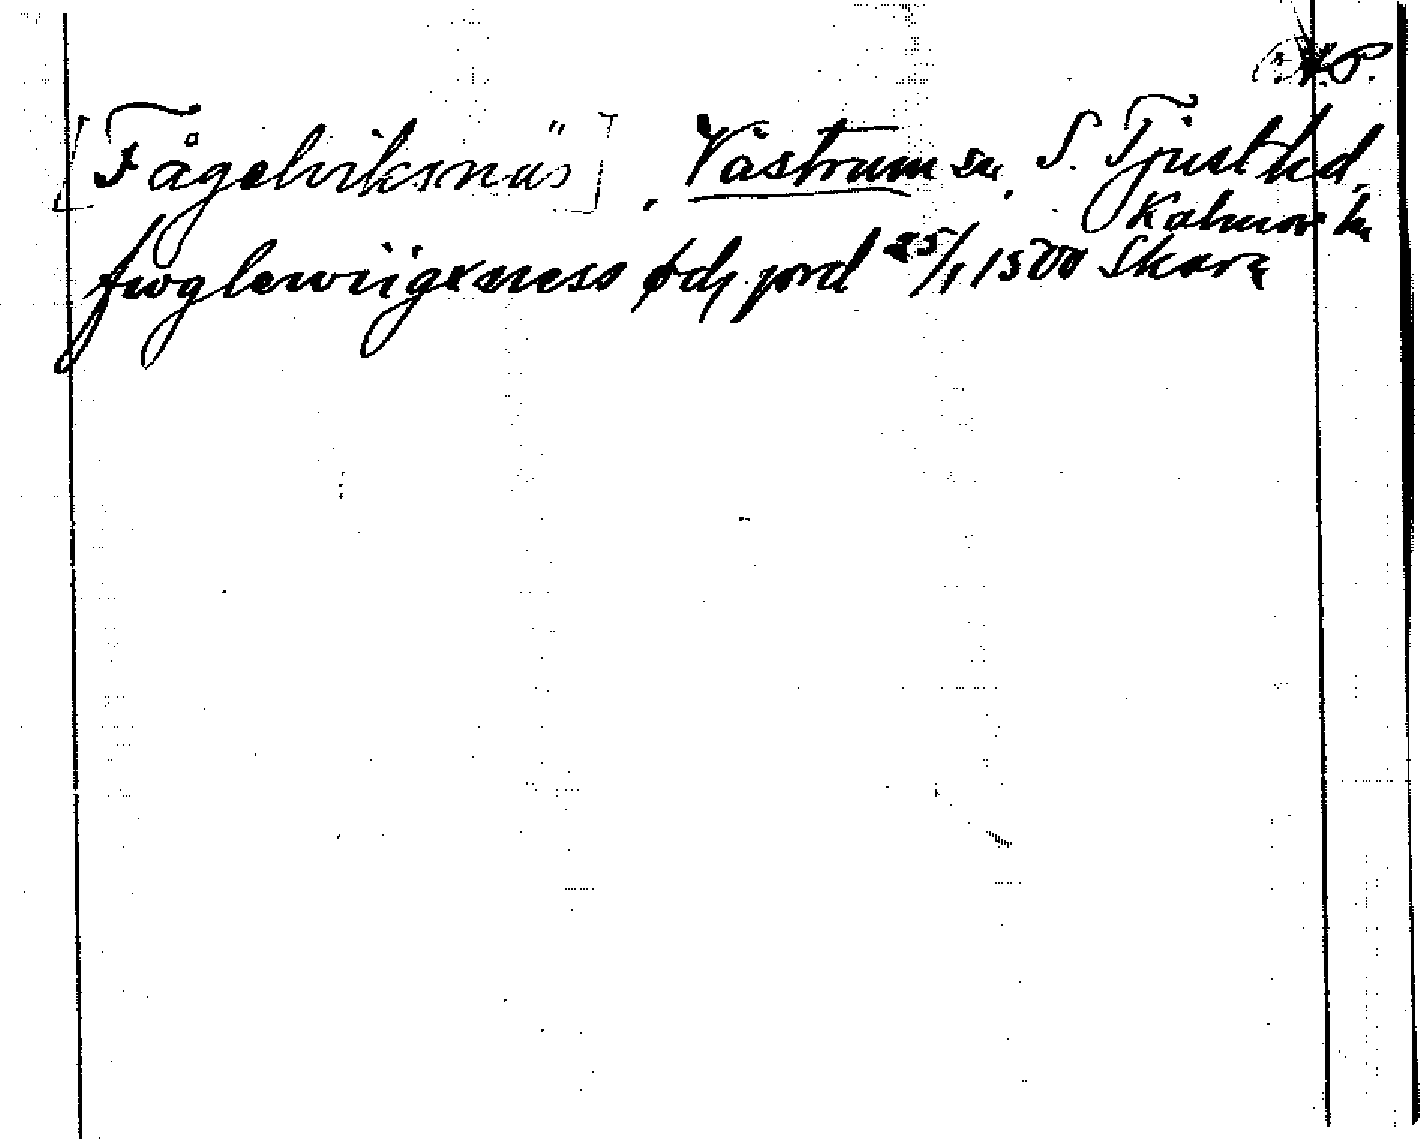 [Fågelviksnäs], Västrum sn, S. Tjust hd,
Kalmar ln
fwglewiigxness ödj jord 25/1 1500 Skara